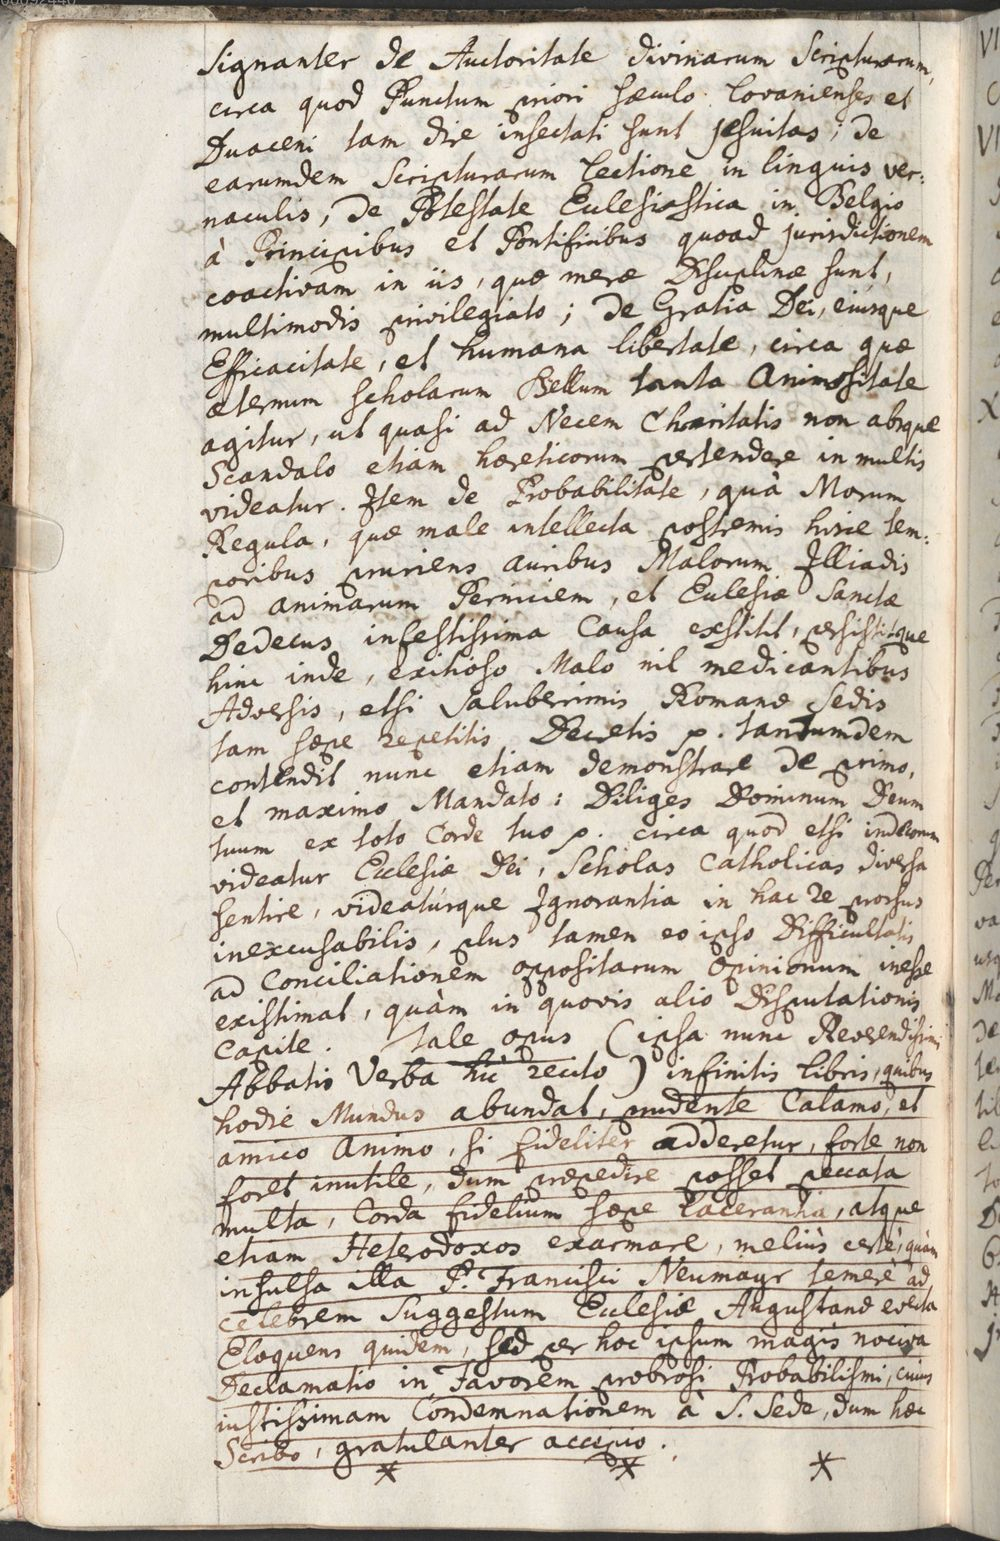 signanter de Auctoritate divinarum Scripturarum,
circa quod Punctum priori sæculo Lovanienses et
Duaceni tam dire insectati sunt Jesuitas; de
earumdem Scripturarum lectione in linguis ver:
naculis, de Potestate Ecclesiastica in Belgio
à Principibus et Pontificibus quoad jurisdictionem
coactivam in iis, quæ meræ Disciplinæ sunt,
multimodis privilegiato; de Gratia Dei, eiusque
Efficacitate, et humana libertate, circa quæ
æternum scholarum Bellum tanta Animositate
agitur, ut quasi ad Necem Charitatis non absque
Scandalo etiam hæreticorum pertendere in multis
videatur. Item de Probabilitate, quà Morum
Regula, quæ male intellecta postremis hisce tem:
poribus pruriens auribus Malorum Illiadis
ad animarum Perniciem, et Ecclesiæ Sanctæ
Dedecus infestissima Causa exstitit, persistitque
hinc inde, exitioso Malo nil medicantibus
Adversis, etsi saluberrimis Romanæ Sedis
tam sæpe repetitis Decretis p. tantumdem
contendit nunc etiam demonstrare de primo,
et maximo Mandato: Diliges Dominum Deum
tuum ex toto Corde tuo p. circa quod etsi indecorum
videatur Ecclesiæ Dei, Scholas Catholicas diversa
sentire, videatúrque Ignorantia in hac re prorsus
inexcusabilis, plus tamen eo ipso Difficultatis
ad Conciliationem oppositarum Opinionum inesse
existimat, quàm in quovis alio Disputationis
Capite. Tale opus (ipsa nunc Reverendissimi
Abbatis Verba hic recito) infinitis libris, quibus
hodie Mundus abundat, prudente Calamo, et
amico Animo, si fideliter adderetur, forte non
foret inutile, dum præpedire posset peccata
multa, Corda fidelium sæpe lacerantia, atque
etiam Heterodoxos exarmare, meliùs certè, quàm
insulsa illa P. Francisci Neumayr temerè ad
celebrem Suggestum Ecclesiæ Augustanæ evecta
Eloquens quidem, sed per hoc ipsum magis nociva
Declamatio in Favorem probrosi Probabilismi, cuius
iustissimam Condemnationem à S. Sede, dum hæc
Scribo, gratulanter accipio.
* * *